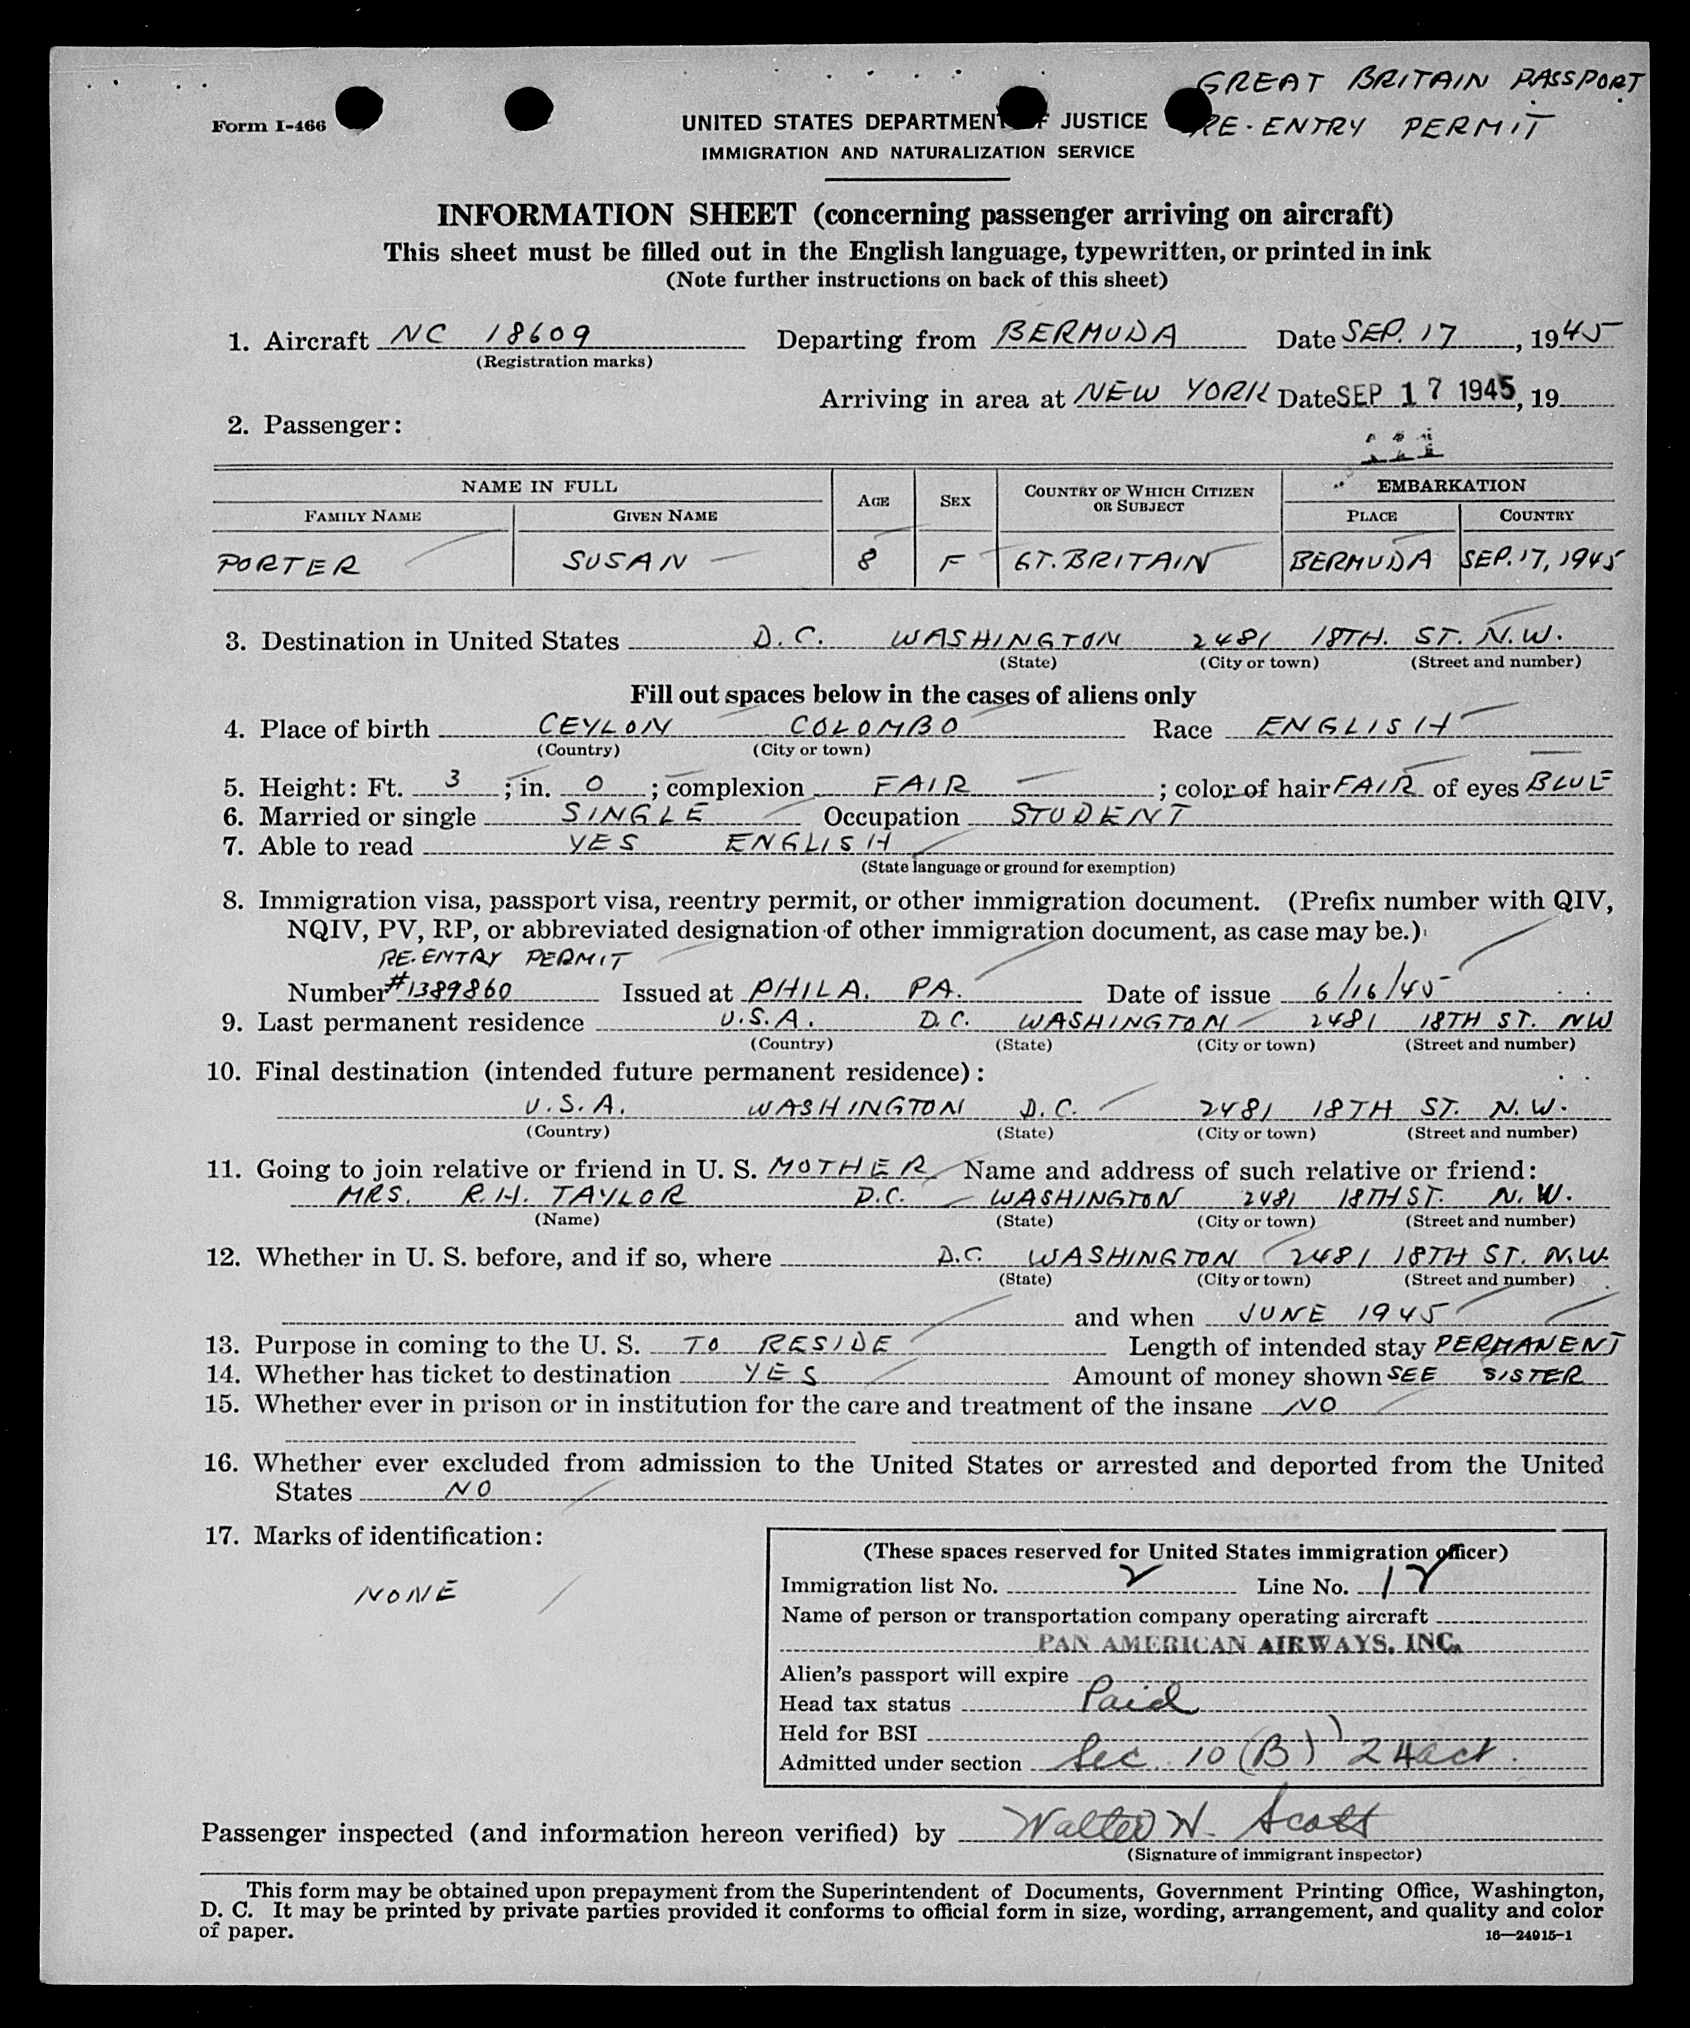 GREAT BRITAIN PASSPORT
RE-ENTRY PERMIT
Form I-466
UNITED STATES DEPARTMENT OF JUSTICE
IMMIGRATION AND NATURALIZATION SERVICE
INFORMATION SHEET (concerning passenger arriving on aircraft)
This sheet must be filled out in the English language, typewritten, or printed in ink
(Note further instructions on back of this sheet)
1. Aircraft NC 18609 Departing from BERMUDA Date SEP. 17, 1945
(Registration marks)
Arriving in area at NEW YORK Date SEP 17 1945, 19
2. Passenger:
NAME IN FULL AGE SEX COUNTRY OF WHICH CITIZEN OR SUBJECT EMBARKATION
FAMILY NAME GIVEN NAME PLACE COUNTRY
PORTER SUSAN 8 F GT. BRITAIN BERMUDA SEP. 17, 1945
3. Destination in United States D.C. WASHINGTON 2481 18TH. ST. N.W.
(State) (City or town) (Street and number)
Fill out spaces below in the cases of aliens only
4. Place of birth CEYLON COLOMBO Race ENGLISH
(Country) (City or town)
5. Height: Ft. 3; in. 0; complexion FAIR; color of hair FAIR of eyes BLUE
6. Married or single SINGLE Occupation STUDENT
7. Able to read YES ENGLISH
(State language or ground for exemption)
8. Immigration visa, passport visa, reentry permit, or other immigration document. (Prefix number with QIV,
NQIV, PV, RP, or abbreviated designation of other immigration document, as case may be.)
RE-ENTRY PERMIT
Number #1389860 Issued at PHILA. PA. Date of issue 6/16/45
9. Last permanent residence U.S.A. D.C. WASHINGTON 2481 18TH ST. NW
(Country) (State) (City or town) (Street and number)
10. Final destination (intended future permanent residence):
U.S.A. WASHINGTON D.C. 2481 18TH ST. N.W.
(Country) (State) (City or town) (Street and number)
11. Going to join relative or friend in U. S. MOTHER Name and address of such relative or friend:
MRS. R.H. TAYLOR D.C. WASHINGTON 2481 18TH ST. N.W.
(Name) (State) (City or town) (Street and number)
12. Whether in U. S. before, and if so, where D.C. WASHINGTON 2481 18TH ST. N.W.
(State) (City or town) (Street and number)
and when JUNE 1945
13. Purpose in coming to the U. S. TO RESIDE Length of intended stay PERMANENT
14. Whether has ticket to destination YES Amount of money shown SEE SISTER
15. Whether ever in prison or in institution for the care and treatment of the insane NO
16. Whether ever excluded from admission to the United States or arrested and deported from the United
States NO
17. Marks of identification:
NONE
(These spaces reserved for United States immigration officer)
Immigration list No. 2 Line No. 12
Name of person or transportation company operating aircraft
PAN AMERICAN AIRWAYS, INC.
Alien's passport will expire
Head tax status Paid
Held for BSI
Admitted under section Sec. 10 (B) 24 act.
Passenger inspected (and information hereon verified) by Walter W. Scott
(Signature of immigrant inspector)
This form may be obtained upon prepayment from the Superintendent of Documents, Government Printing Office, Washington,
D. C. It may be printed by private parties provided it conforms to official form in size, wording, arrangement, and quality and color
of paper.
16—24915-1